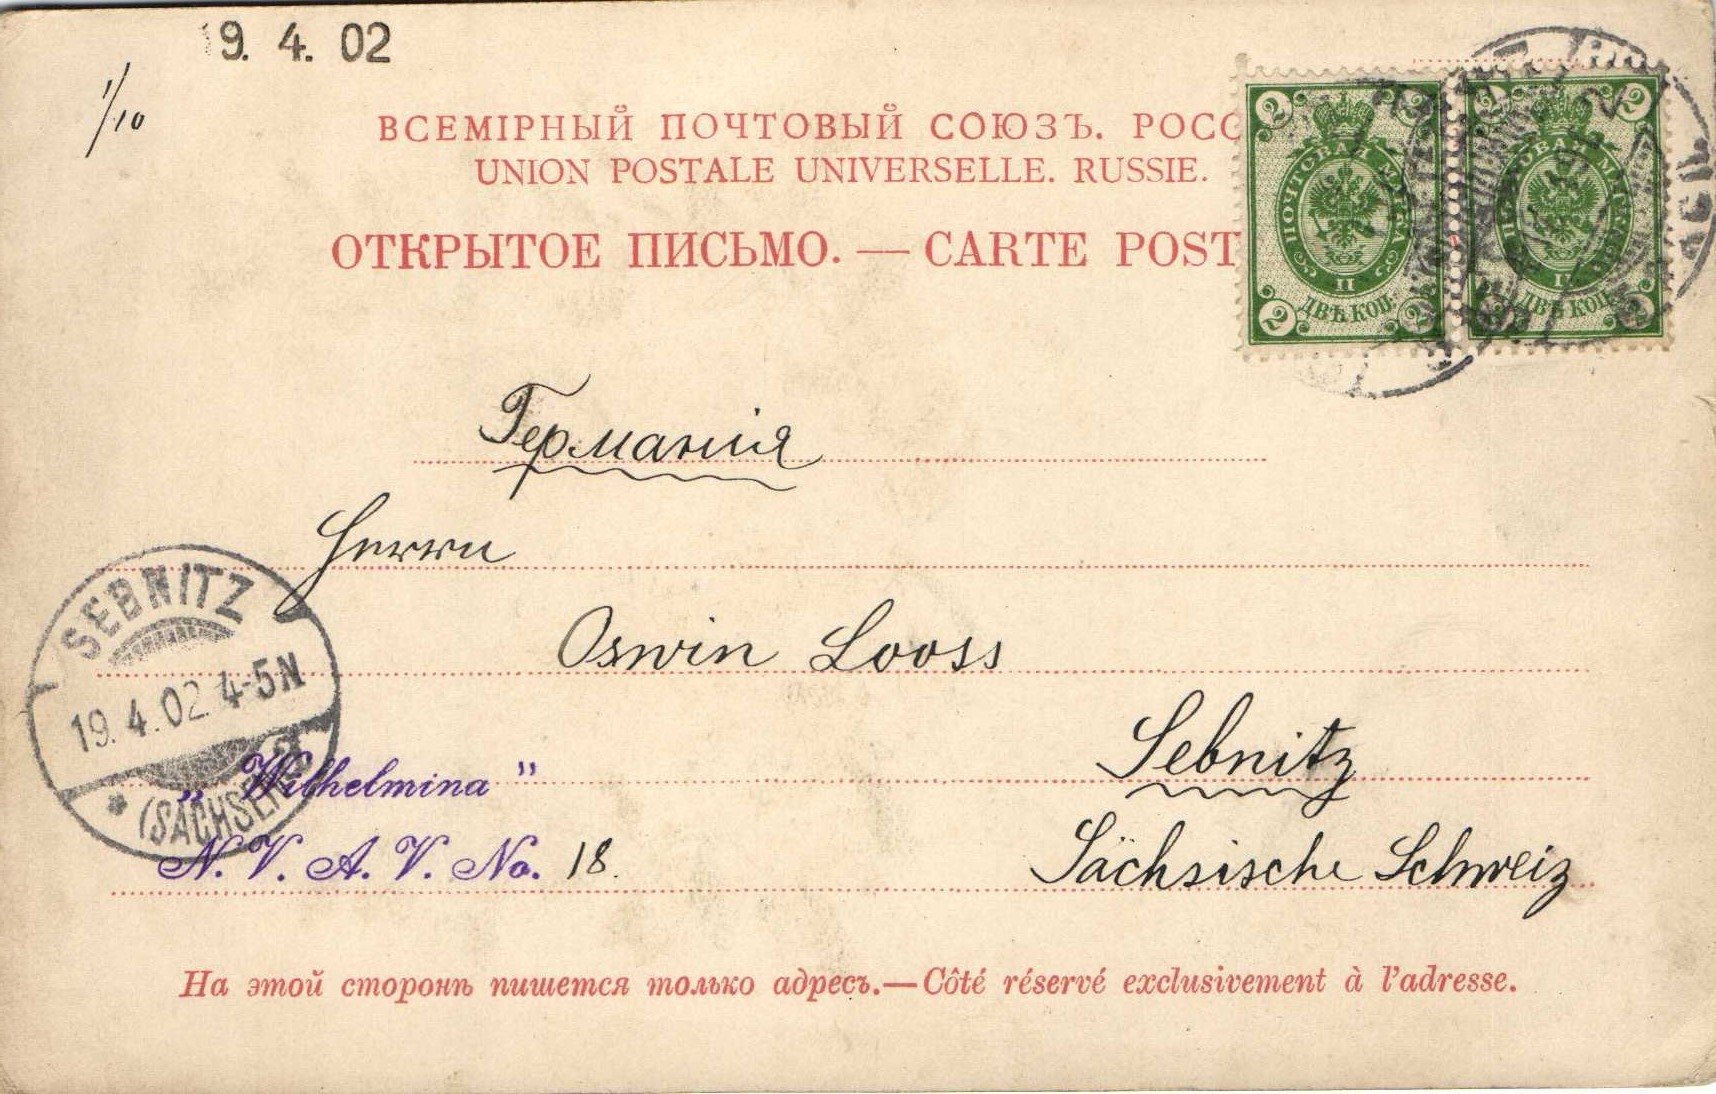 19. 4. 02
1/10
ВСЕМІРНЫЙ ПОЧТОВЫЙ СОЮЗЪ. РОСС
UNION POSTALE UNIVERSELLE. RUSSIE.
ОТКРЫТОЕ ПИСЬМО. — CARTE POST
2 2
ПОЧТОВАЯ МАРКА
II
ДВѢ КОП.
2 2
2 2
ПОЧТОВАЯ МАРКА
II
ДВѢ КОП.
2 2
Германія
Herrn
Oswin Looss
Sebnitz
Sächsische Schweiz
SEBNITZ
19. 4. 02. 4-5N
* (SACHSEN)
„Wilhelmina"
N. V. A. V. No. 18.
На этой сторонѣ пишется только адресъ.—Côté réservé exclusivement à l'adresse.